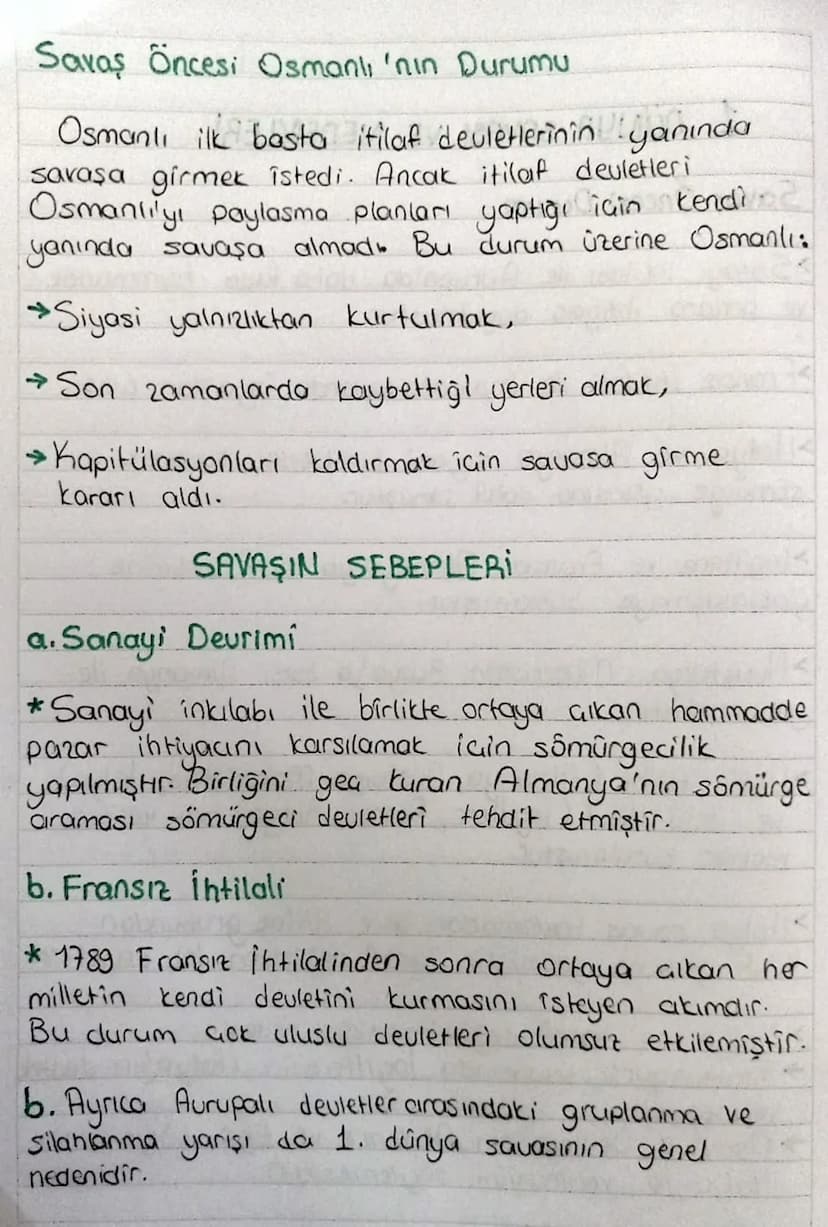 Savaş Öncesi Osmanlı'nın Durumu
Osmanlı ilk başta itilaf devletlerinin yanında
savaşa girmek istedi. Ancak itilaf devletleri
Osmanlı'yı paylaşma planları yaptığı için kendi
yanında savaşa almadı. Bu durum üzerine Osmanlı:
→ Siyasi yalnızlıktan kurtulmak,
→ Son zamanlarda kaybettiği yerleri almak,
→ Kapitülasyonları kaldırmak için savaşa girme
kararı aldı.
SAVAŞIN SEBEPLERİ
a. Sanayi Devrimi
* Sanayi inkılabı ile birlikte ortaya çıkan hammadde
pazar ihtiyacını karşılamak için sömürgecilik
yapılmıştır. Birliğini geç kuran Almanya'nın sömürge
araması sömürgeci devletleri tehdit etmiştir.
b. Fransız İhtilali
* 1789 Fransız İhtilalinden sonra ortaya çıkan her
milletin kendi devletini kurmasını isteyen akımdır.
Bu durum çok uluslu devletleri olumsuz etkilemiştir.
b. Ayrıca Avrupalı devletler arasındaki gruplanma ve
silahlanma yarışı da 1. dünya savaşının genel
nedenidir.